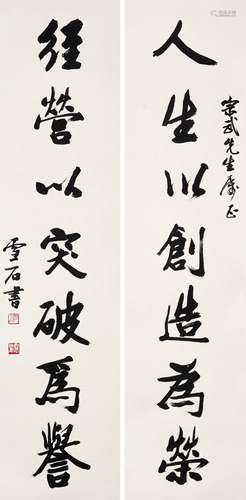 宗武先生属正
人生以創造為榮
經營以突破為譽
雪石書